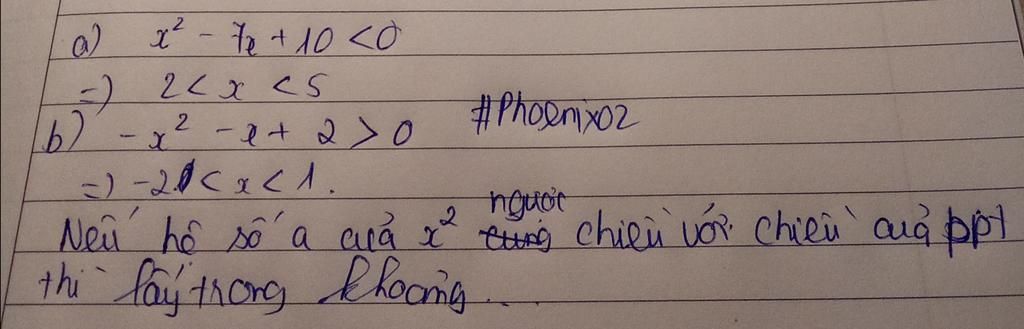 a) x² - 7x + 10 < 0
=) 2 < x < 5
b) -x² - x + 2 > 0
#Phoenix02
=) -2 < x < 1.
Nếu hệ số a của x² ngược chiều với chiều của bpt
thì lấy trong khoảng...